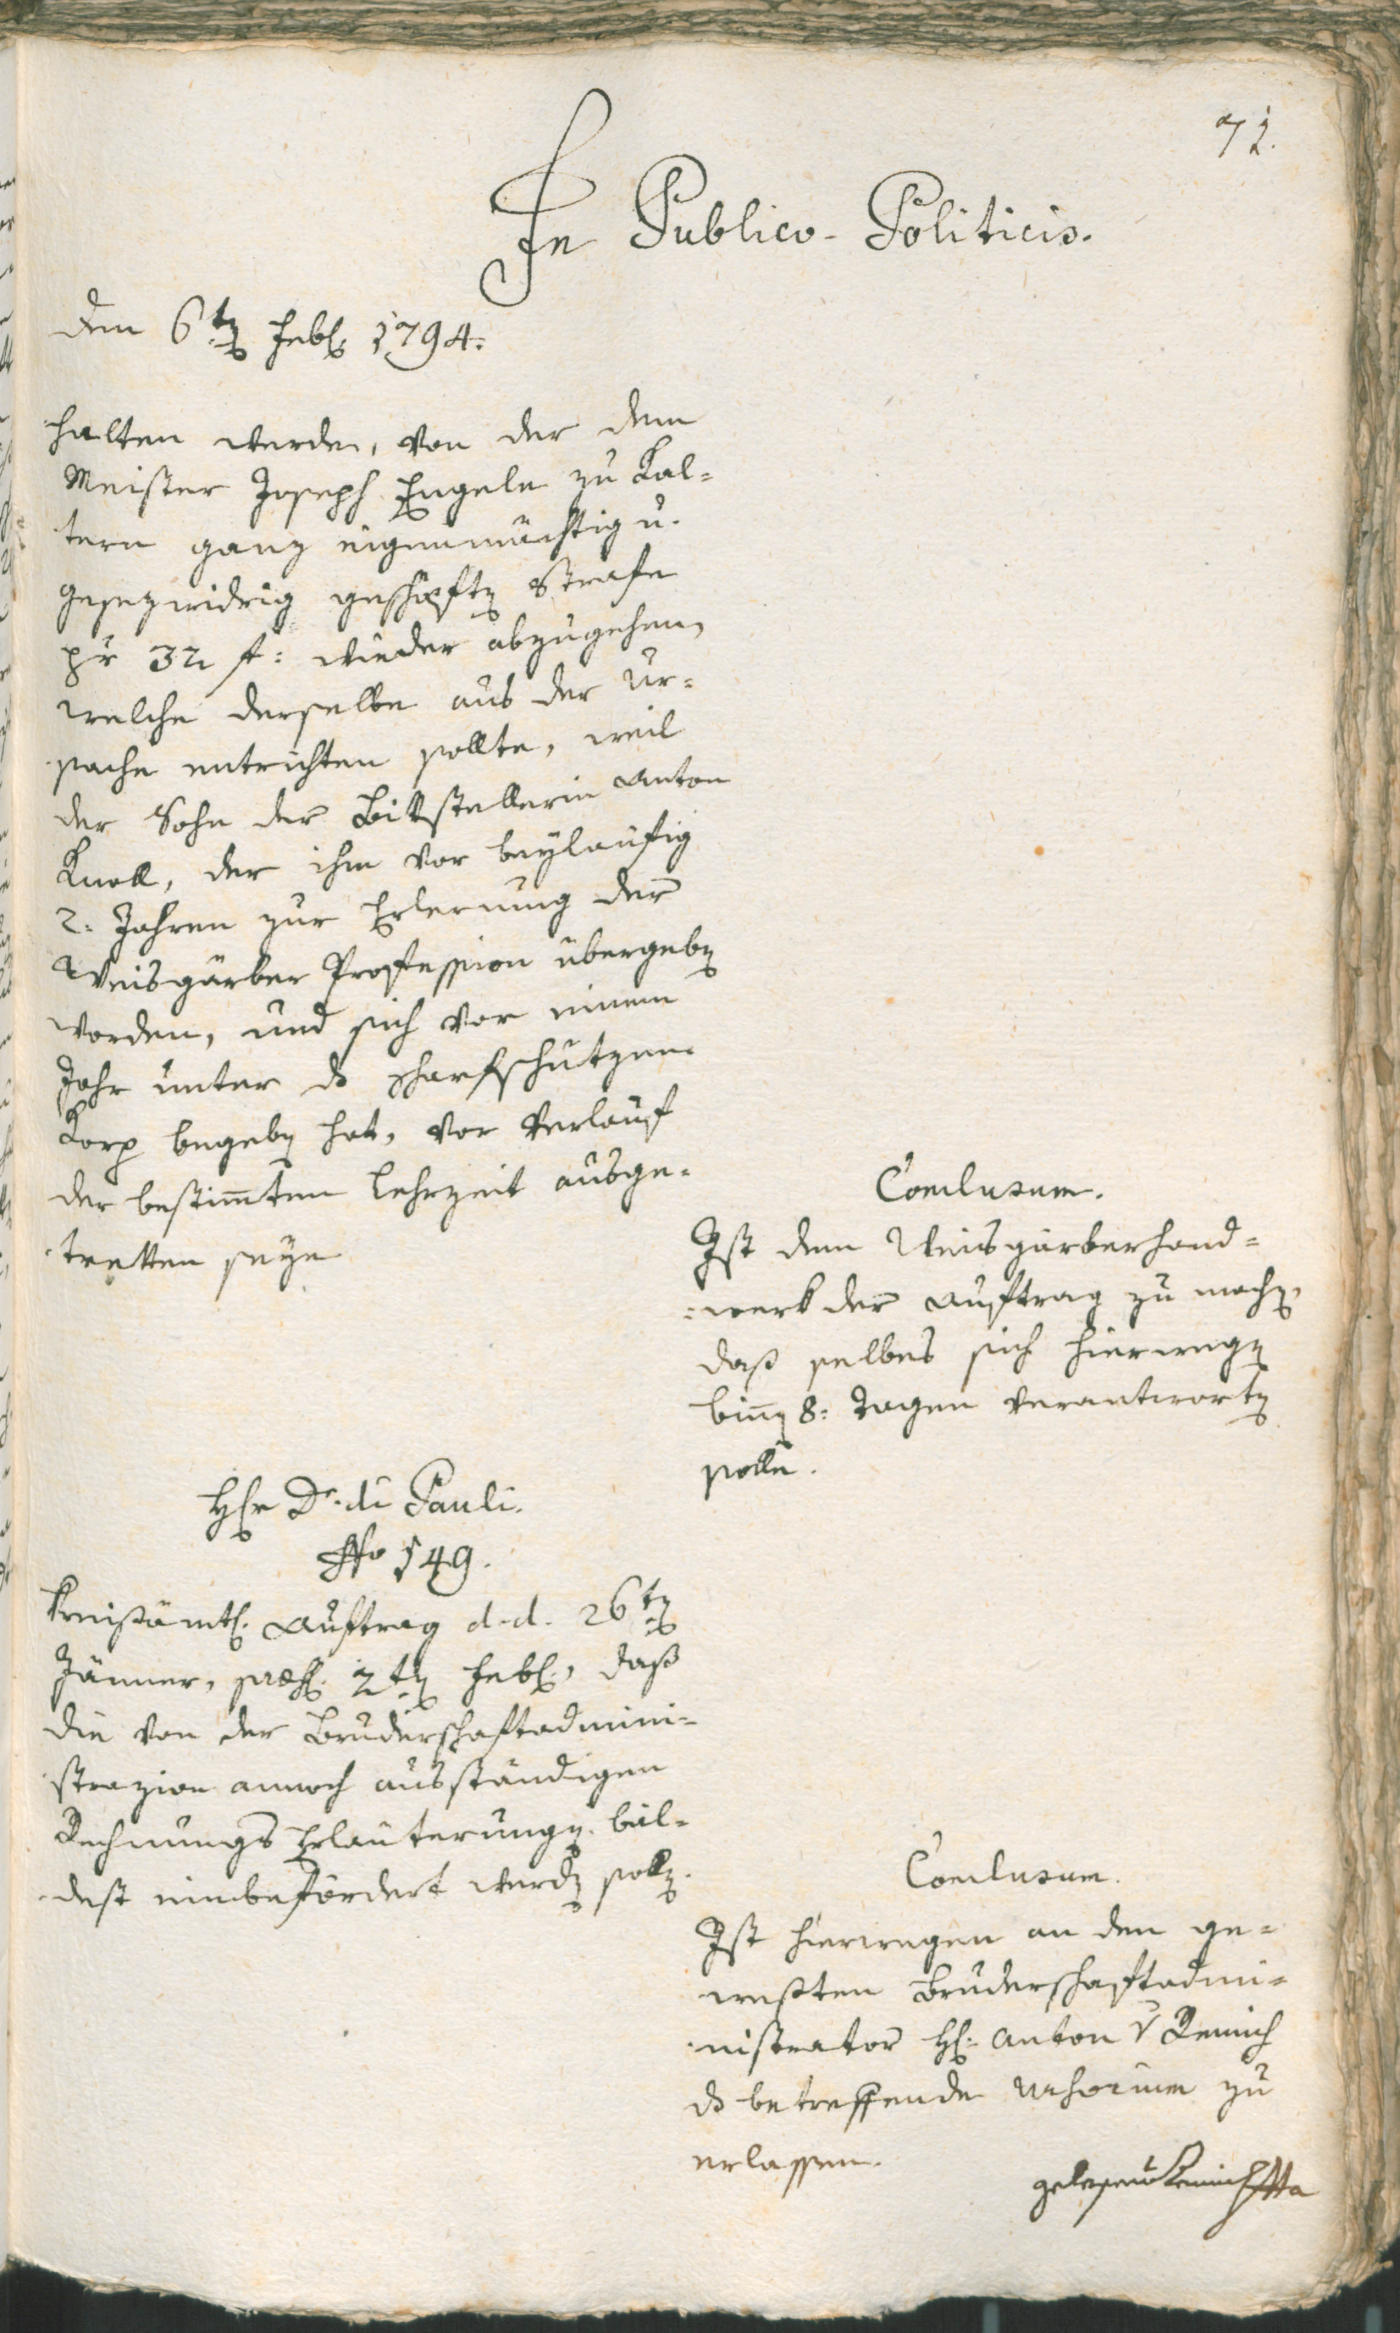 72.
In Publico-Politicis.
Den 6ten Feb. 1794.
halten werden, von der dem
Meister Joseph Engele zu Kal=
tern ganz eigenmächtig u.
gesezwidrig geschöpften Strafe
pr 32 f: wieder abzugehen,
welche derselbe aus der Ur=
sache entrichten sollte, weil
der Sohn der Bittstellerin Anton
Knoll, der ihm vor beyläufig
2: Jahren zur Erlernung der
Weisgärber Profession übergeben
worden, und sich vor einem
Jahr unter das Scharfschützen
Korps begeben hat, vor Verlauf
der bestimmten Lehrzeit ausge=
tretten seye
Conclusum.
Ist dem Weisgärberhand=
=werk der Auftrag zu machen,
daß selbes sich hierwegen
binnen 8: Tagen verantworten
solle.
Herr Dr. di Pauli.
No 149.
Kreisämtl. Auftrag d. d. 26ten
Jänner, præs. 2ten Feb., daß
die von der Bruderschaftadmini=
strazion annoch ausständigen
Rechnungs Erläuterungen bäl=
dest einbefördert werden sollen.
Conclusum.
Ist hierwegen an den ge=
westen Bruderschaftadmi=
nistrator H: Anton v Remich
das betreffende Urhorium zu
erlassen.